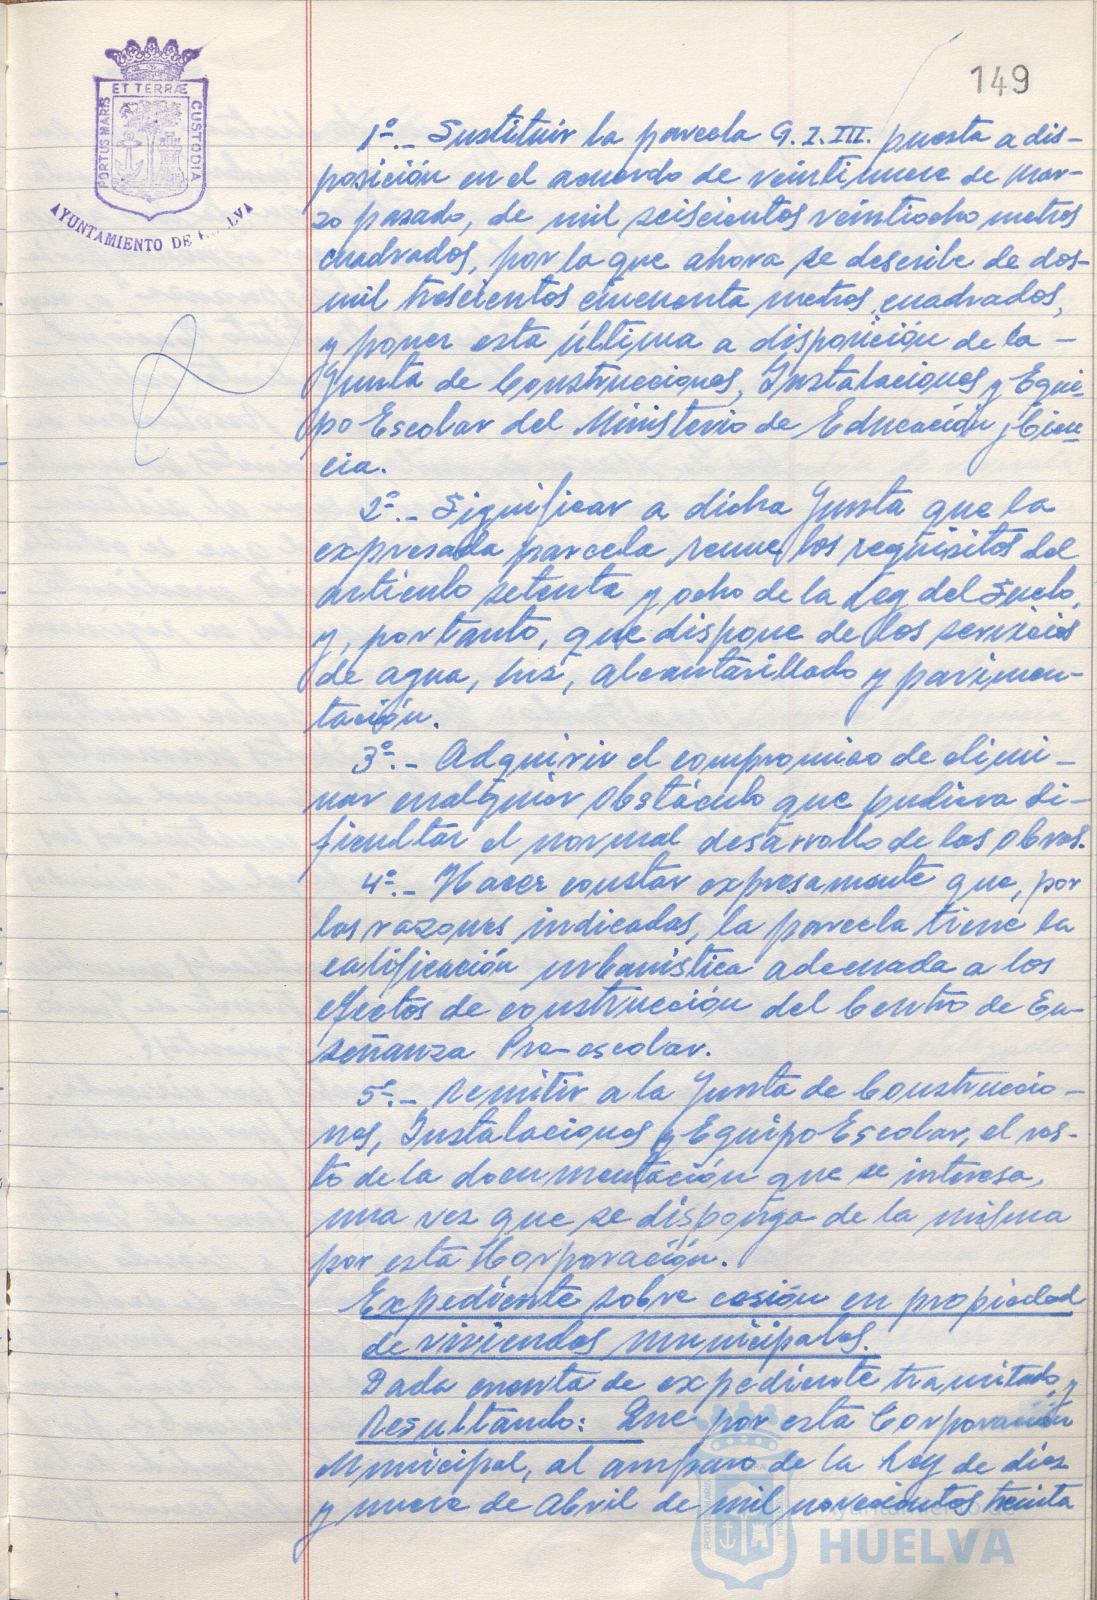 149
ET TERRÆ
PORTUS MARIS
CUSTODIA
AYUNTAMIENTO DE
1º.- Sustituir la parcela G.I.III. puesta a dis-
posición en el acuerdo de veintinueve de mar-
zo pasado, de mil seiscientos veintiocho metros
cuadrados, por la que ahora se describe de dos-
mil trescientos cincuenta metros cuadrados,
y poner esta última a disposición de la -
Junta de Construcciones, Instalaciones y Equi-
po Escolar del Ministerio de Educación y Cien-
cia.
2º.- Significar a dicha Junta que la
expresada parcela reune los requisitos del
artículo setenta y ocho de la Ley del Suelo,
y, por tanto, que dispone de los servicios
de agua, luz, alcantarillado y pavimen-
tación.
3º.- Adquirir el compromiso de elimi-
nar cualquier obstáculo que pudiera di-
ficultar el normal desarrollo de las obras.
4º.- Hacer constar expresamente que, por
las razones indicadas, la parcela tiene la
calificación urbanística adecuada a los
efectos de construcción del Centro de En-
señanza Pre-escolar.
5º.- Remitir a la Junta de Construccio-
nes, Instalaciones y Equipo Escolar, el res-
to de la documentación que se interesa,
una vez que se disponga de la misma
por esta Corporación.
Expediente sobre cesión en propiedad
de viviendas municipales.
Dada cuenta de expediente tramitado, y
Resultando: Que por esta Corporación
Municipal, al amparo de la Ley de diez
y nueve de Abril de mil novecientos treinta
Ayuntamiento de
HUELVA